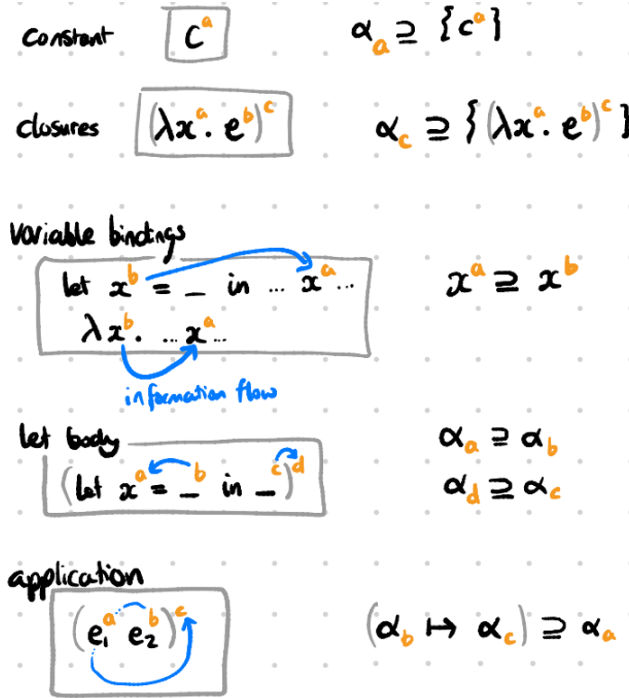 constant c^a α_a ⊇ {c^a}
closures (λx^a. e^b)^c α_c ⊇ {(λx^a. e^b)^c}
variable bindings
let x^b = _ in ... x^a ... x^a ⊇ x^b
λx^b. ... x^a ...
information flow
let body α_a ⊇ α_b
(let x^a = _^b in _^c)^d α_d ⊇ α_c
application
(e₁^a e₂^b)^c (α_b ↦ α_c) ⊇ α_a